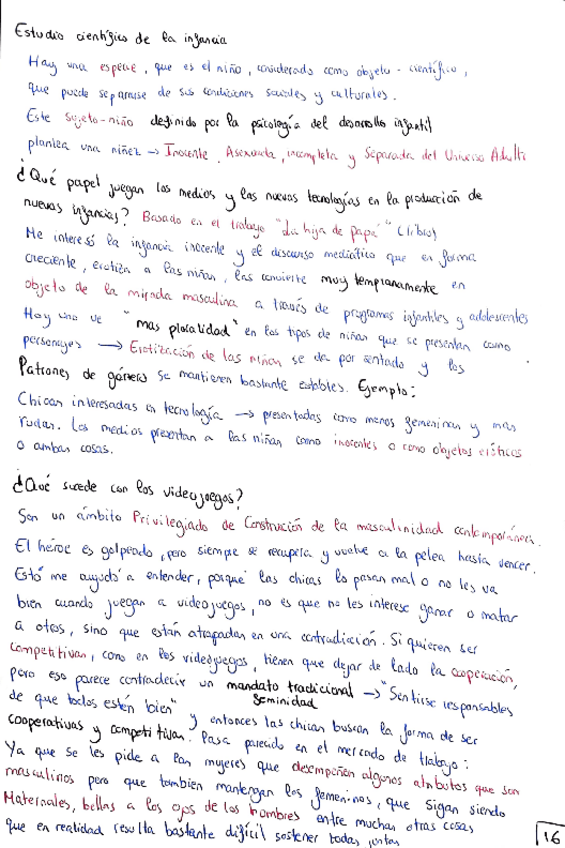 Estudio científico de la infancia
Hay una especie, que es el niño, considerado como objeto - científico,
que puede separarse de sus condiciones sociales y culturales.
Este sujeto-niño definido por la psicología del desarrollo infantil
plantea una niñez → Inocente, Asexuada, incompleta y Separada del Universo Adulto
¿Qué papel juegan los medios y las nuevas tecnologías en la producción de
nuevas infancias? Basado en el trabajo "La hija de papá" (libro)
Me interesó la infancia inocente y el discurso mediático que en forma
creciente, erotiza a las niñas, las convierte muy tempranamente en
objeto de la mirada masculina a través de programas infantiles y adolescentes
Hoy uno ve "mas pluralidad" en los tipos de niñas que se presentan como
personajes → Erotización de las niñas se da por sentado y los
Patrones de género se mantienen bastante estables. Ejemplo:
Chicas interesadas en tecnología → presentadas como menos femeninas y mas
rudas. Los medios presentan a las niñas como inocentes o como objetos eróticos
o ambas cosas.
¿Qué sucede con los videojuegos?
Son un ámbito Privilegiado de Construcción de la masculinidad contemporánea.
El héroe es golpeado, pero siempre se recupera y vuelve a la pelea hasta vencer.
Esto me ayudó a entender, porqué las chicas lo pasan mal o no les va
bien cuando juegan a videojuegos, no es que no les interese ganar o matar
a otros, sino que están atrapadas en una contradicción. Si quieren ser
Competitivas, como en los videojuegos, tienen que dejar de lado la cooperación,
pero eso parece contradecir un mandato tradicional → "Sentirse responsables
feminidad
de que todos estén bien" y entonces las chicas buscan la forma de ser
cooperativas y competitivas. Pasa parecido en el mercado de trabajo:
Ya que se les pide a las mujeres que desempeñen algunos atributos que son
masculinos pero que tambien mantengan los femeninos, que sigan siendo
Maternales, bellas a los ojos de los hombres entre muchas otras cosas
que en realidad resulta bastante difícil sostener todas juntas
16